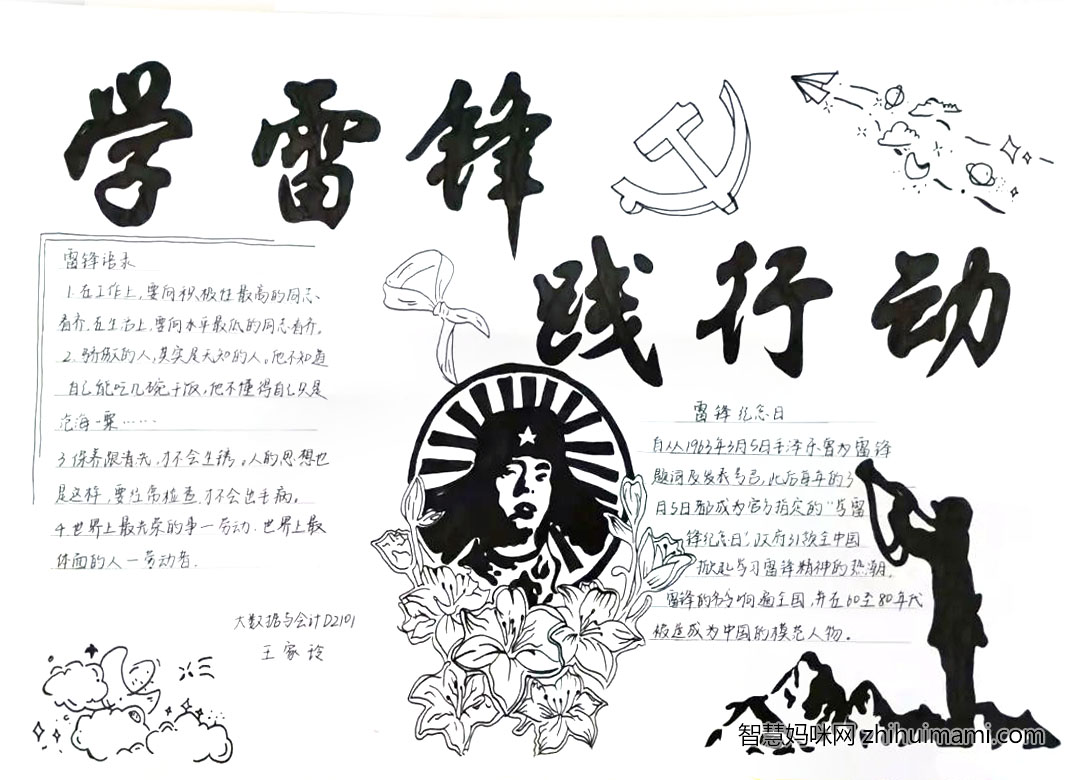 学雷锋
践行动
雷锋语录
1.在工作上,要向积极性最高的同志
看齐,在生活上,要向水平最低的同志看齐。
2.骄傲的人,其实是无知的人。他不知道
自己能吃几碗干饭,他不懂得自己只是
沧海一粟……
3.保养限清洗,才不会生锈。人的思想也
是这样,要经常检查,才不会出毛病。
4.世界上最光荣的事一劳动.世界上最
体面的人一劳动者.
大数据与会计D2101
王家玲
雷锋纪念日
自从1963年3月5日毛泽东曾为雷锋
题词及发表号召,此后每年的3
月5日都成为官方指定的“学雷
锋纪念日”,政府引领全中国
掀起学习雷锋精神的热潮.
雷锋的名字响遍全国,并在60至80年代
被造成为中国的模范人物。
智慧妈咪网 zhihuimami.com